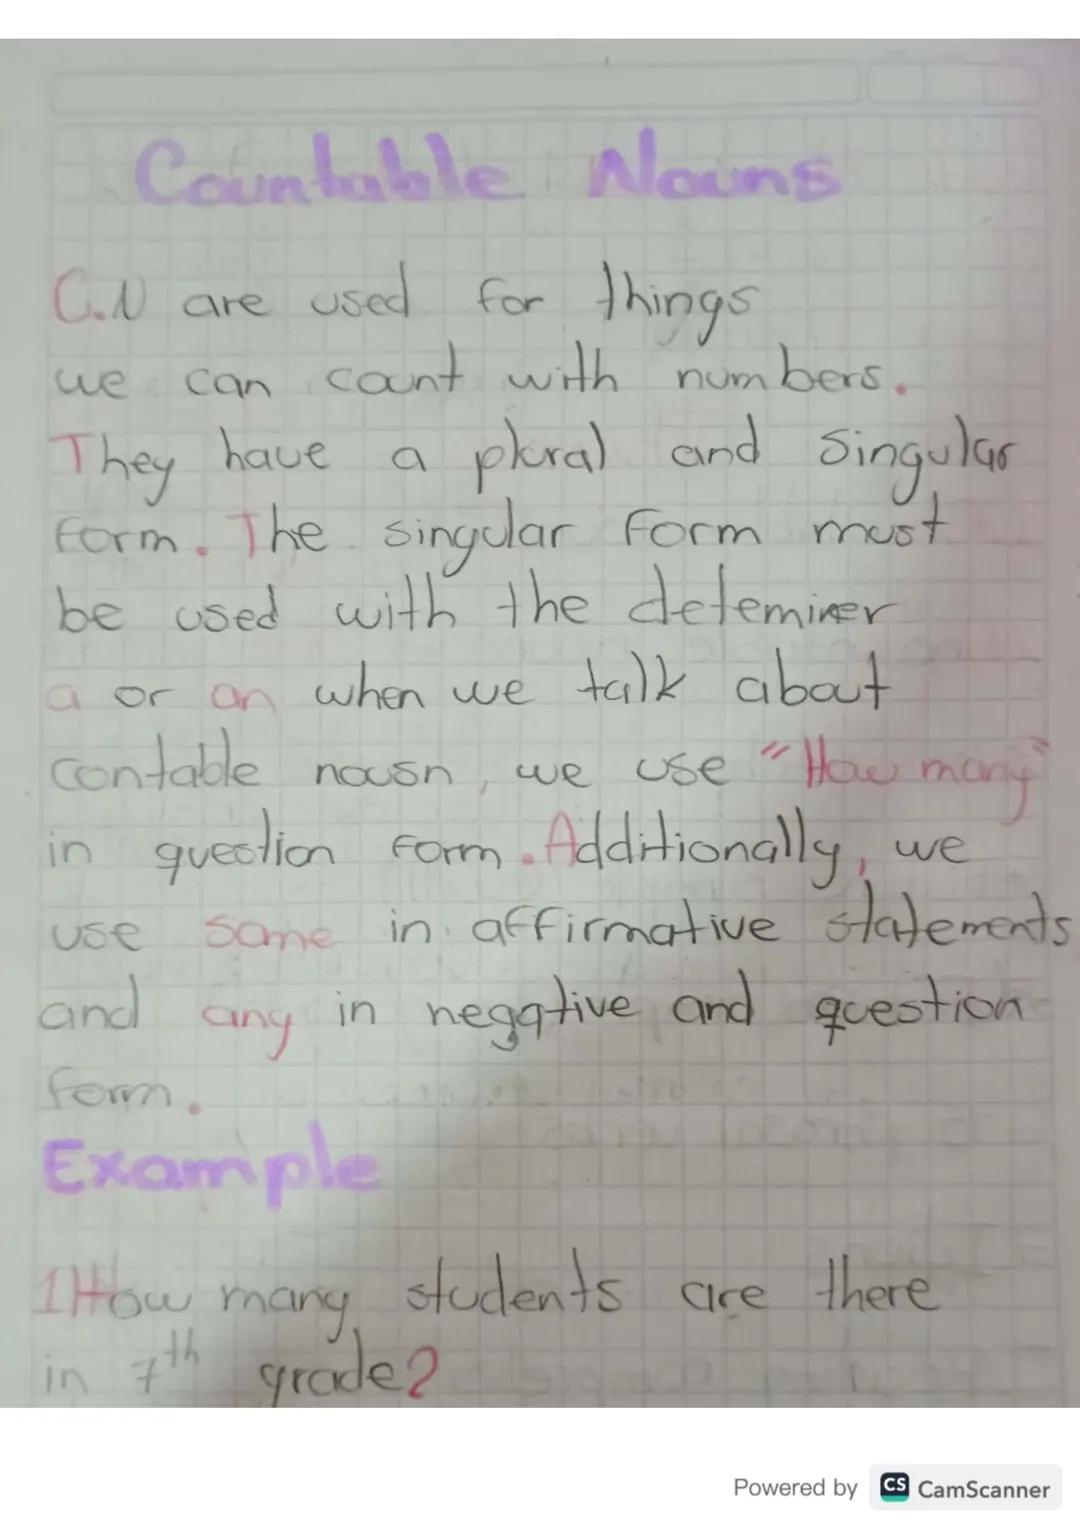 Countable Nouns
C.N are used for things
we can count with numbers.
They have a plural and singular
form. The singular form must
be used with the deteminer
a or an when we talk about
contable nousn, we use "How many"
in question form. Additionally, we
use some in affirmative statements
and any in negative and question
form.
Example
1 How many students are there
in 7th grade?
Powered by CS CamScanner